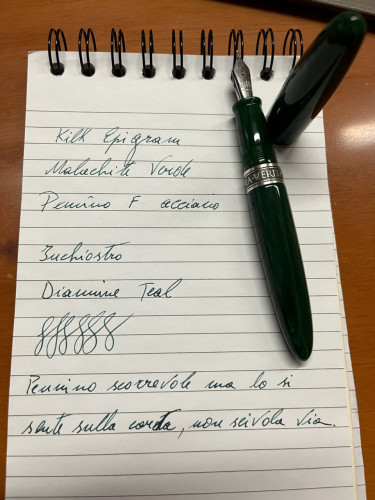 Kilk Epigram
Malachite Verde
Pennino F acciaio
Inchiostro
Diamine Teal
Pennino scorrevole ma lo si
sente sulla carta, non scivola via.